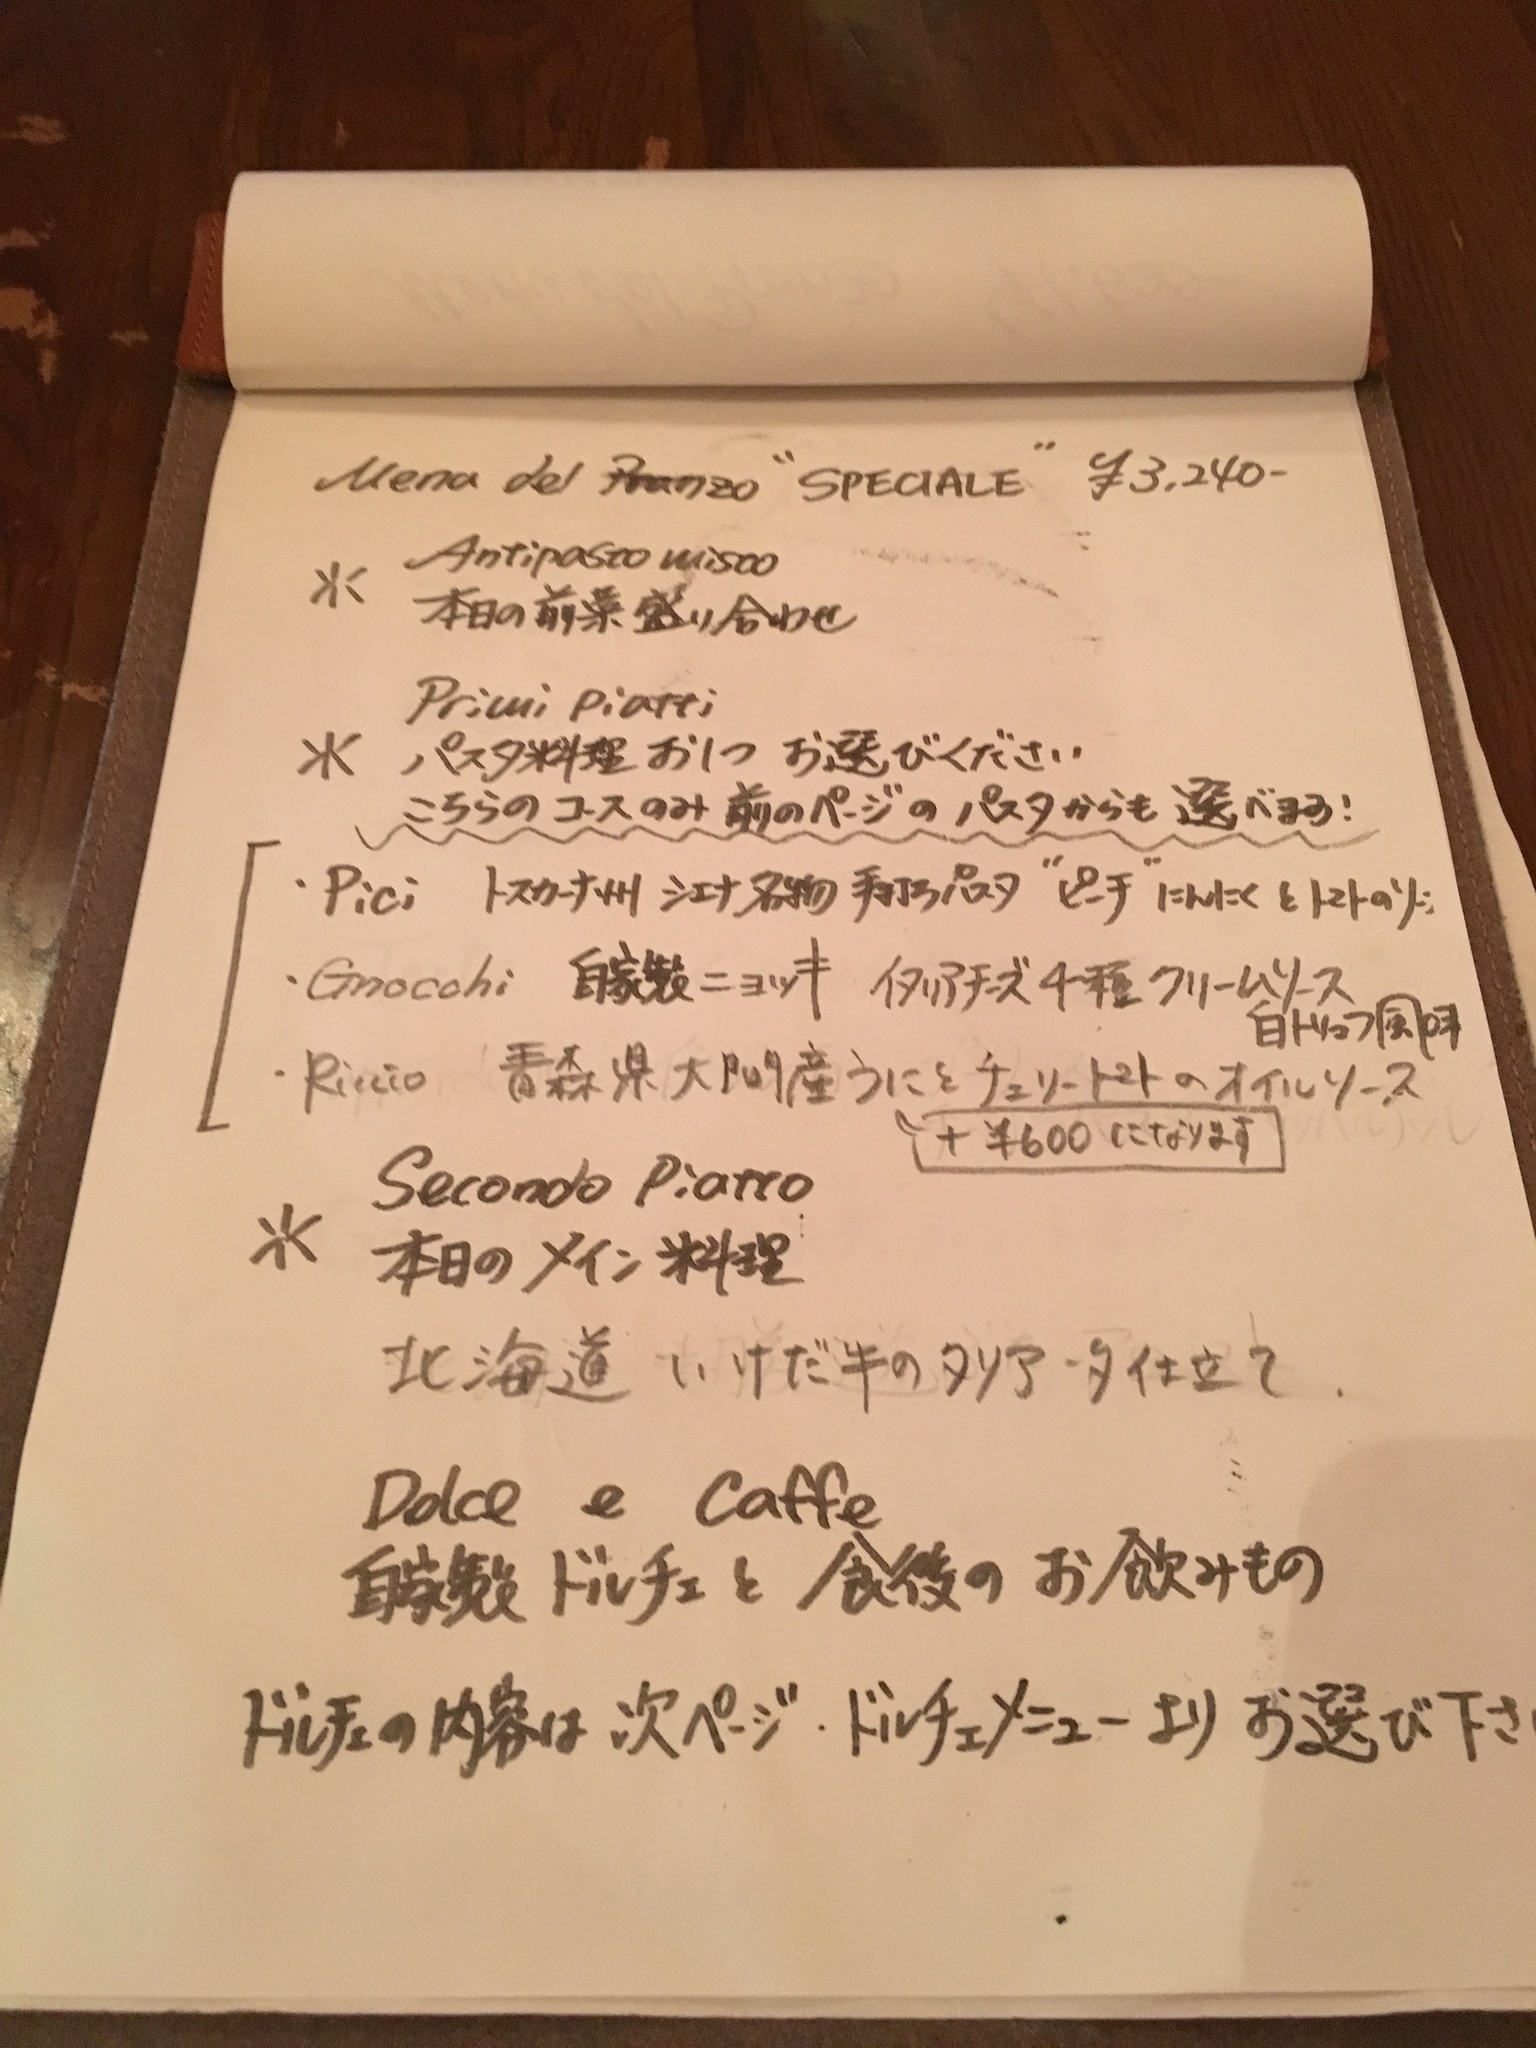 Menu del Pranzo "SPECIALE" ¥3,240-
Antipasto misto
※ 本日の前菜盛り合わせ
Primi piatti
※ パスタ料理 お1つ お選びください
こちらのコースのみ 前のページのパスタからも選べます!
・Pici トスカーナ州 シエナ名物 手打ちパスタ "ピーチ" にんにくとトマトのソース
・Gnocchi 自家製ニョッキ イタリアチーズ4種クリームソース
白トリュフ風味
・Riccio 青森県大間産うにとチェリートマトのオイルソース
+¥600になります
Secondo Piatto
※ 本日のメイン料理
北海道 いけだ牛のタリアータ仕立て
Dolce e Caffe
自家製ドルチェと食後のお飲みもの
ドルチェの内容は次ページ・ドルチェメニューよりお選び下さい